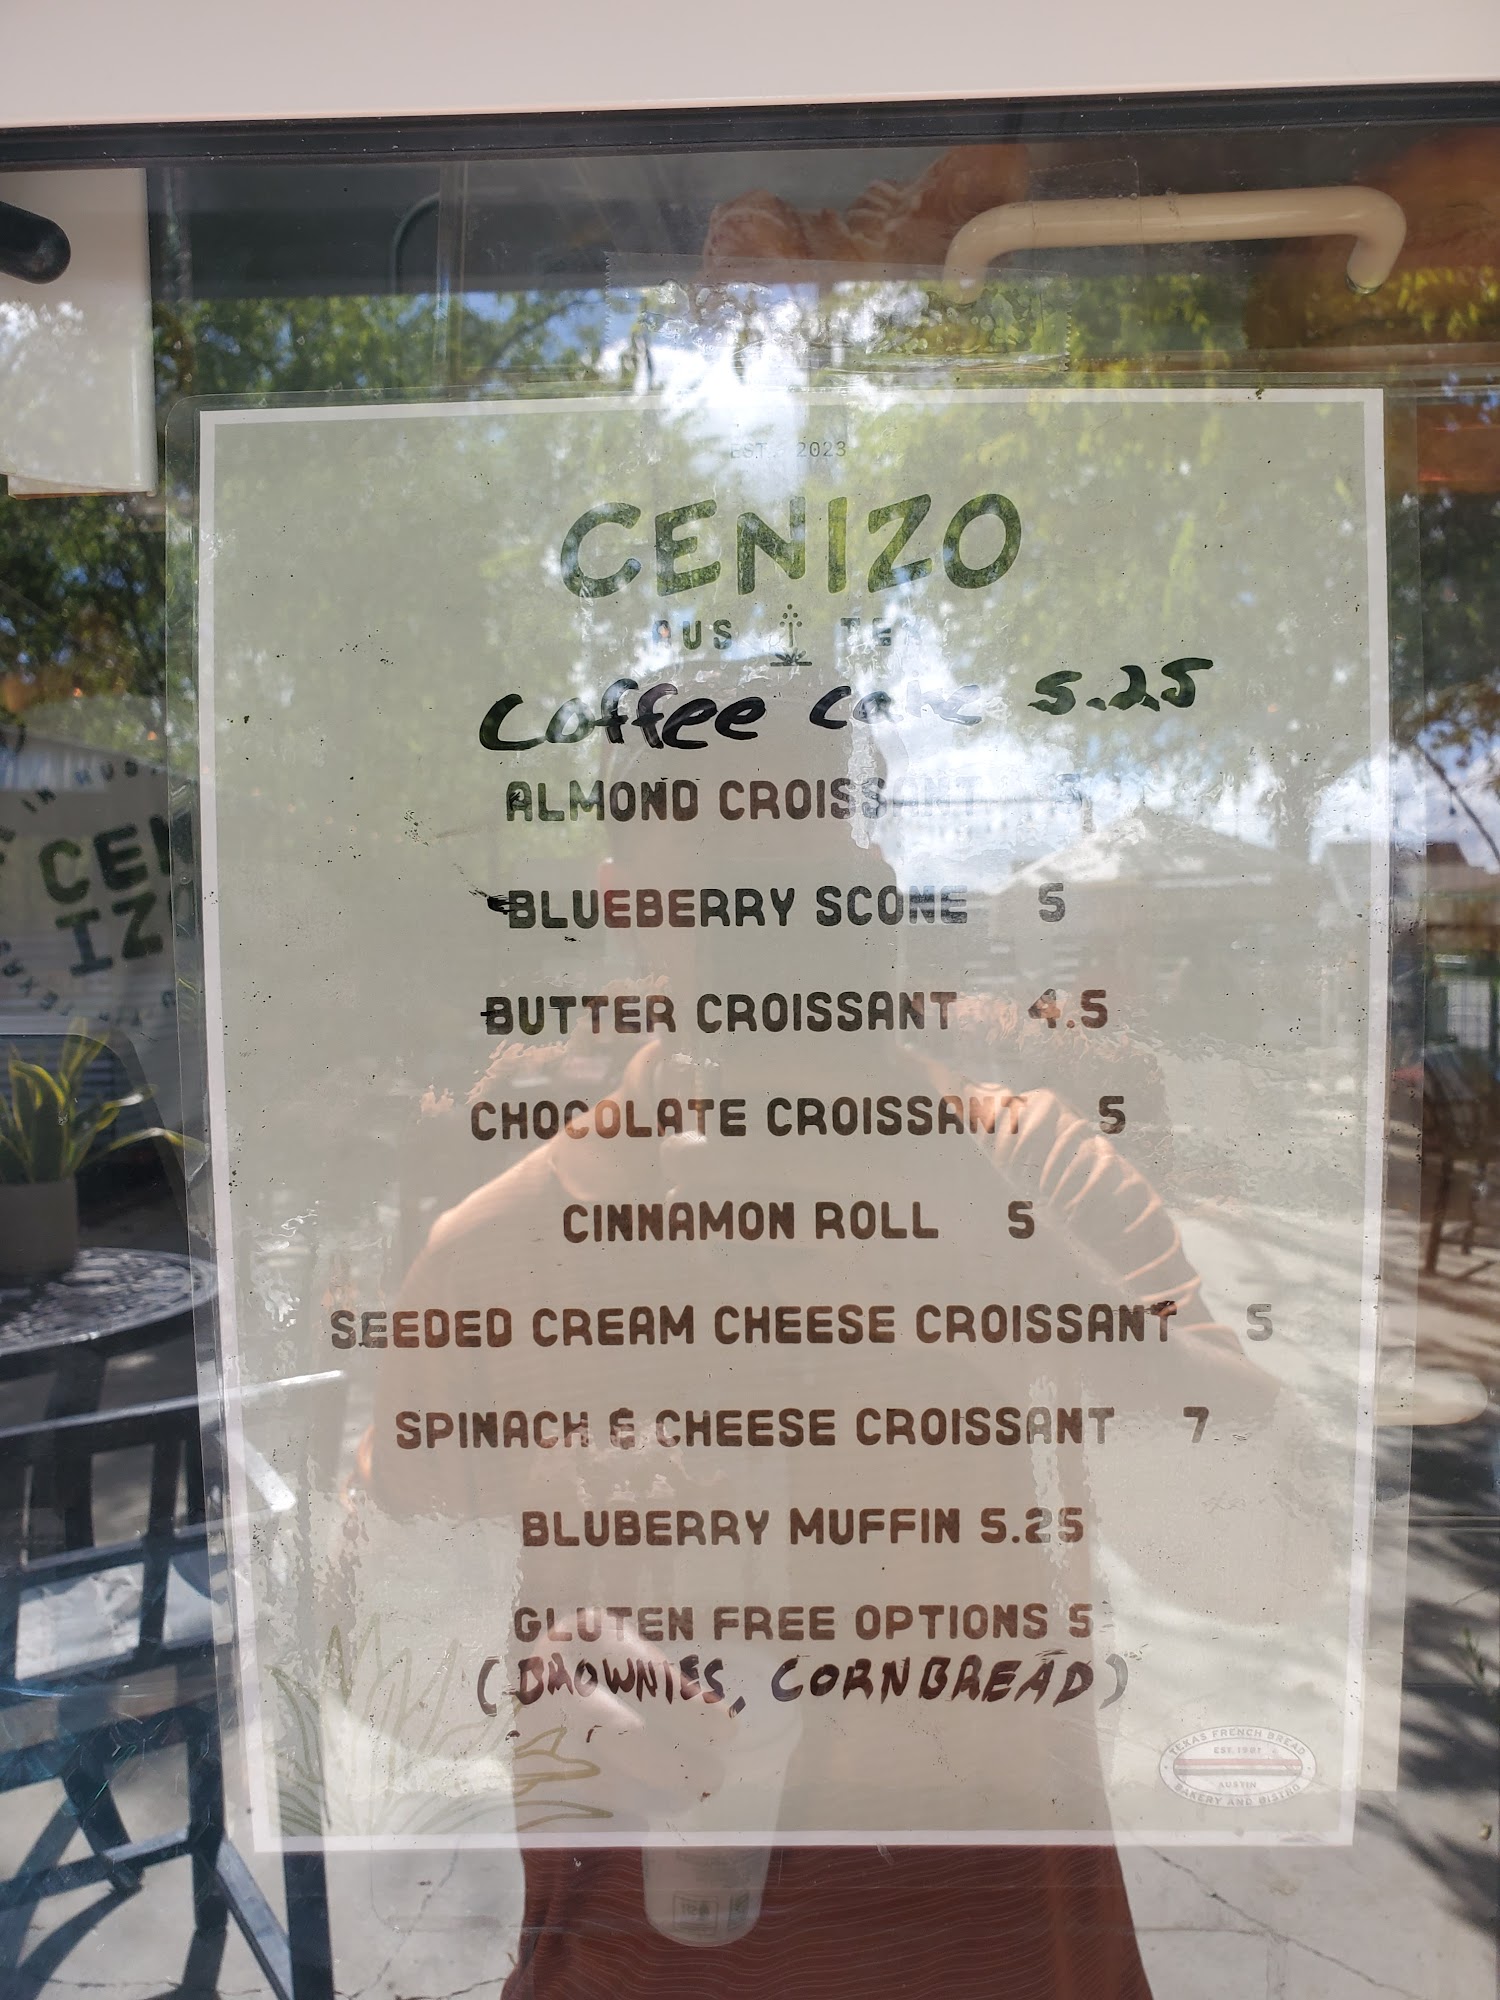 EST. 2023
CENIZO
AUS TEX
Coffee cake 5.25
ALMOND CROISSANT 5
BLUEBERRY SCONE 5
BUTTER CROISSANT 4.5
CHOCOLATE CROISSANT 5
CINNAMON ROLL 5
SEEDED CREAM CHEESE CROISSANT 5
SPINACH & CHEESE CROISSANT 7
BLUBERRY MUFFIN 5.25
GLUTEN FREE OPTIONS 5
(BROWNIES, CORNBREAD)
TEXAS FRENCH BREAD
EST. 1981
AUSTIN
BAKERY AND BISTRO
CEN
IZ